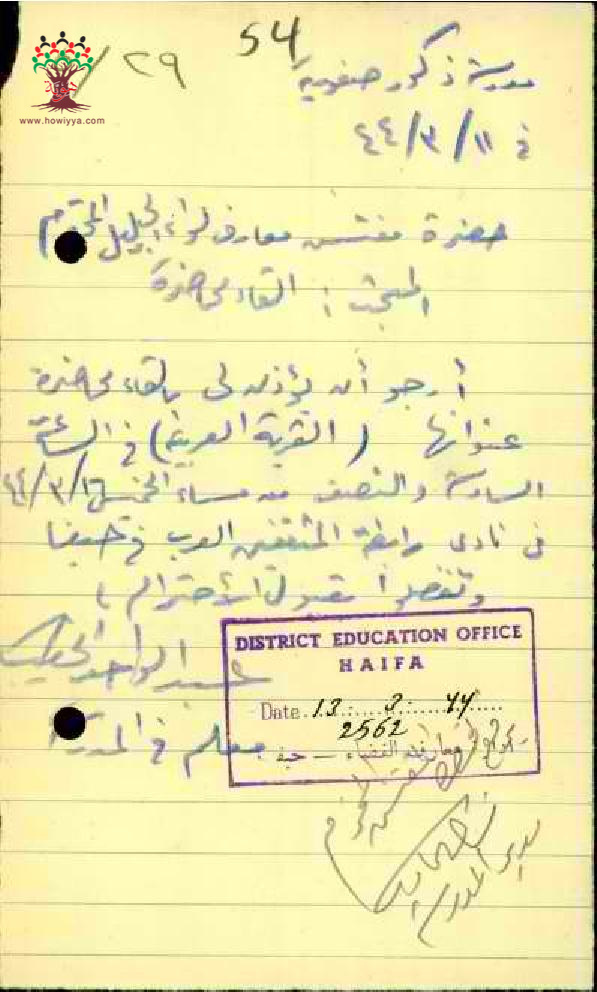 54
٢٩ /
www.howiyya.com
مدرسة ذكور صفورية
في ١١/٣/٤٤
حضرة مفتش معارف لواء الجليل المحترم
المبحث : القاء محاضرة
أرجو أن يؤذن لي بالقاء محاضرة
عنوانها (القرية العربية) في الساعة
السادسة والنصف من مساء الخميس ١٦/٣/٤٤
في نادي رابطة المثقفين العرب في حيفا
وتفضلوا بقبول الاحترام ،
عبد الواحد الخطيب
معلم في المدرسة
DISTRICT EDUCATION OFFICE
HAIFA
Date 13. 3. 44
2562
معارف القضاء — حيفا
مدير المدرسة